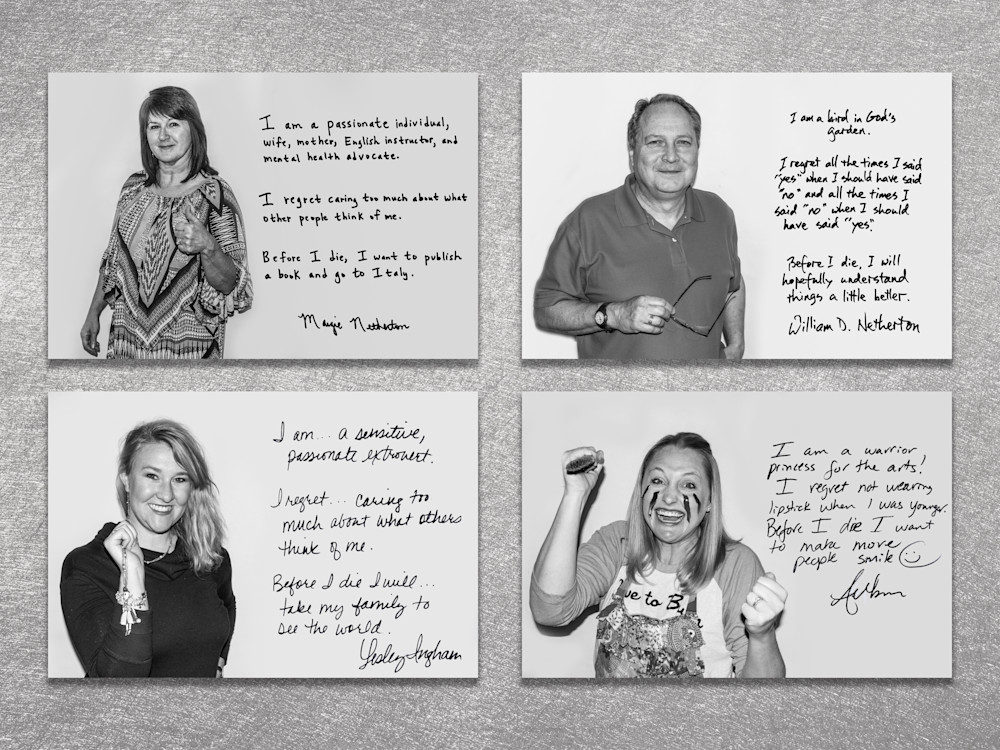 I am a passionate individual,
wife, mother, English instructor, and
mental health advocate.
I regret caring too much about what
other people think of me.
Before I die, I want to publish
a book and go to Italy.
Margie Netherton
I am a bird in God's
garden.
I regret all the times I said
"yes" when I should have said
"no" and all the times I
said "no" when I should
have said "yes".
Before I die, I will
hopefully understand
things a little better.
William D. Netherton
I am... a sensitive,
passionate extrovert.
I regret... caring too
much about what others
think of me.
Before I die I will...
take my family to
see the world.
Lesley Ingham
I am a warrior
princess for the arts!
I regret not wearing
lipstick when I was younger.
Before I die I want
to make more
people smile
ve to B